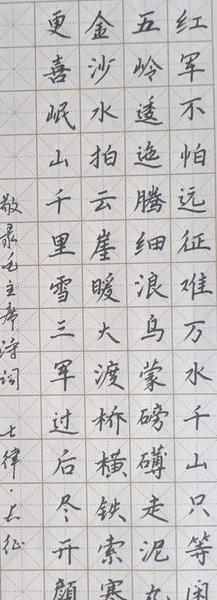 红军不怕远征难万水千山只等闲
五岭逶迤腾细浪乌蒙磅礴走泥丸
金沙水拍云崖暖大渡桥横铁索寒
更喜岷山千里雪三军过后尽开顔
敬录毛主席诗词 七律·长征